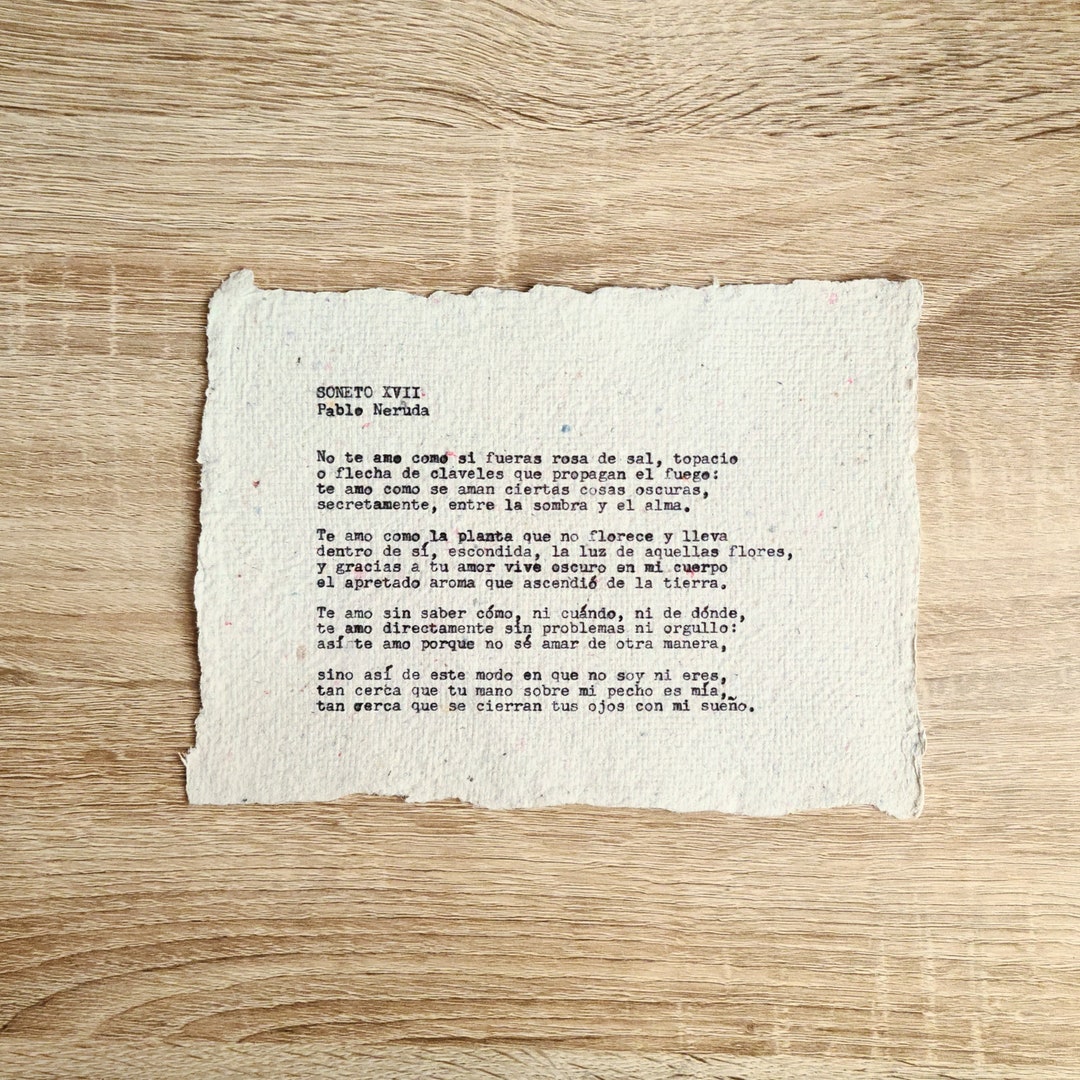 SONETO XVII
Pablo Neruda
No te amo como si fueras rosa de sal, topacio
o flecha de claveles que propagan el fuego:
te amo como se aman ciertas cosas oscuras,
secretamente, entre la sombra y el alma.
Te amo como la planta que no florece y lleva
dentro de sí, escondida, la luz de aquellas flores,
y gracias a tu amor vive oscuro en mi cuerpo
el apretado aroma que ascendió de la tierra.
Te amo sin saber cómo, ni cuándo, ni de dónde,
te amo directamente sin problemas ni orgullo:
así te amo porque no sé amar de otra manera,
sino así de este modo en que no soy ni eres,
tan cerca que tu mano sobre mi pecho es mía,
tan cerca que se cierran tus ojos con mi sueño.